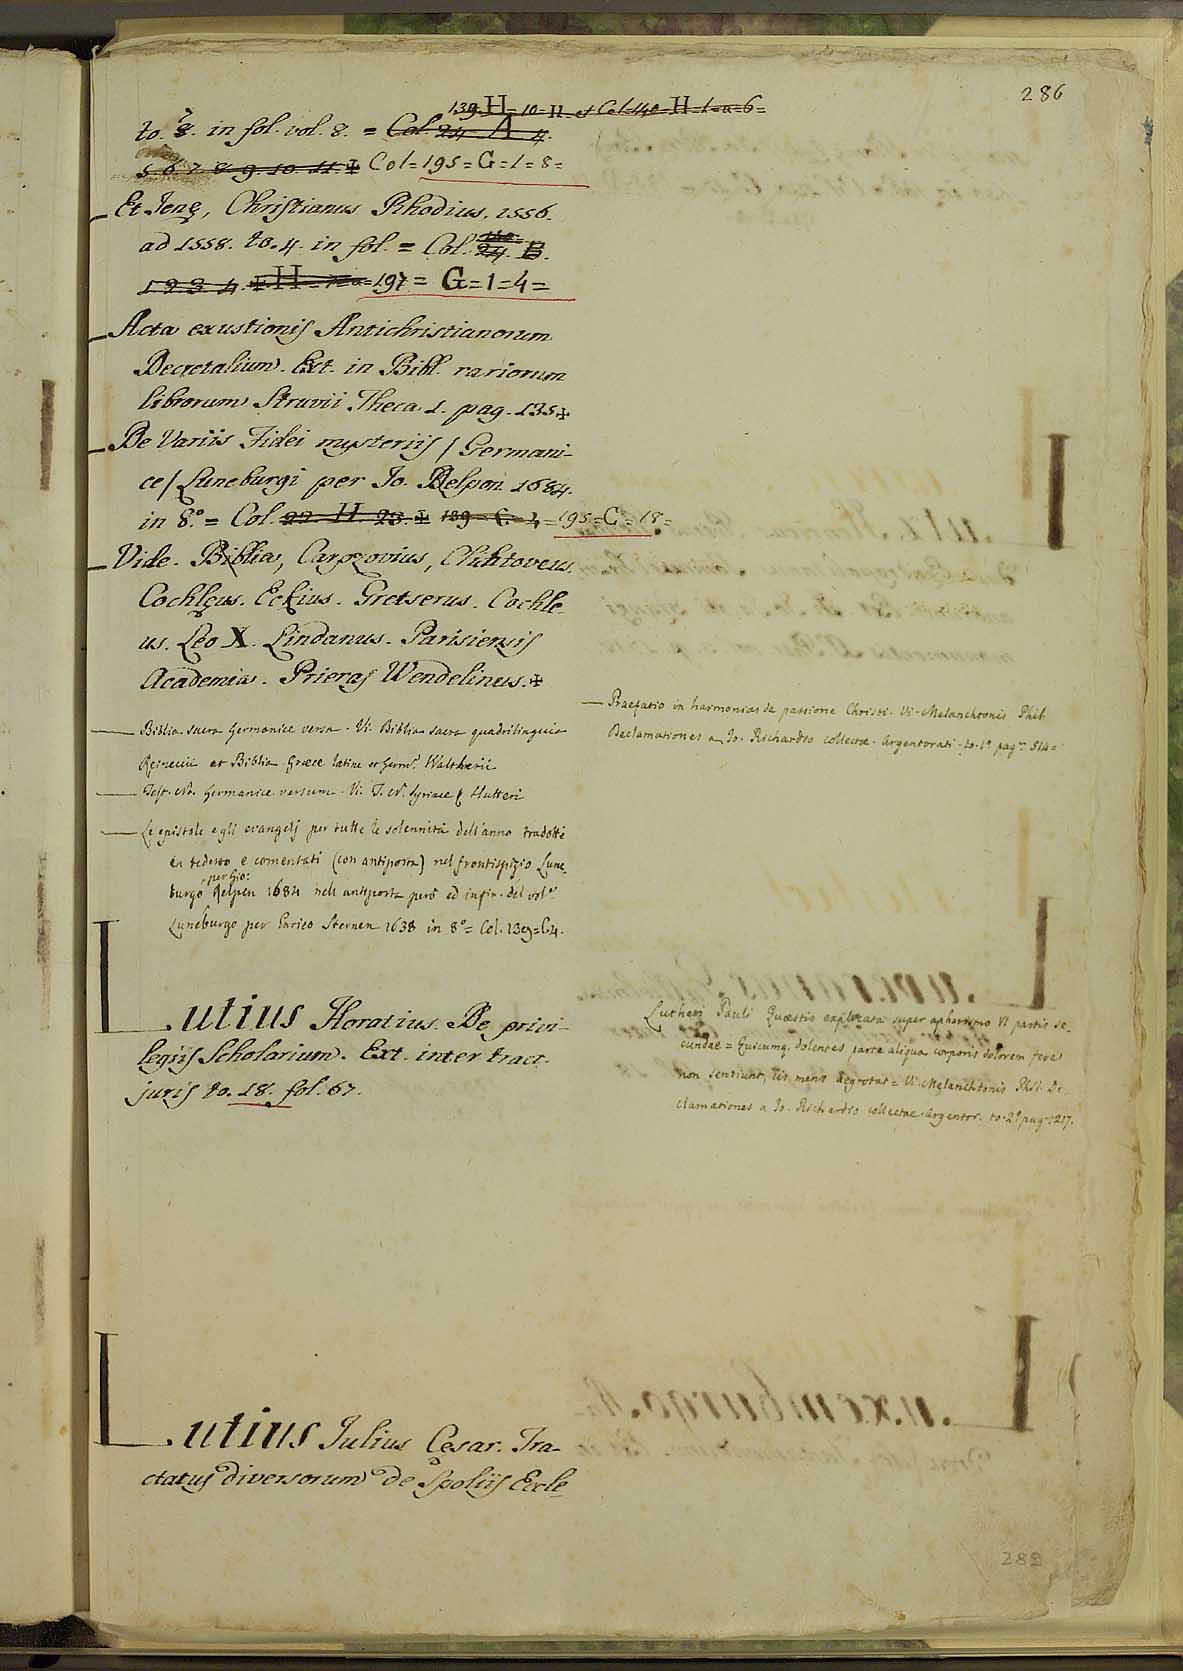 286
139. H = 10 = H = et Col. 140 = H = 1 = a = 6 =
to. 8. in fol. vol. 8. = Col. 24. A 4.
5. 6. 7. 8. 9. 10. 11. ‡ Col = 195 = G = 1 = 8 =
Et Jenę, Christianus Rhodius. 1556.
ad 1558. to. 4. in fol. = Col. 24. B.
1. 2. 3. 4. ‡ H = = 197 = G = 1 = 4 =
Acta exustionis Antichristianorum
Decretalium. Ext. in Bibl. rariorum
librorum Struvii Theca 1. pag. 135 ‡
De Variis Fidei mysteriis / Germani-
ce / Luneburgi per Jo. Relpen 1684.
in 8.º = Col. 22. H. 23. ‡ 139 = C = 4 = 195 = G = 18 =
Vide. Biblia, Carpzovius, Clichtoveus.
Cochlęus. Eckius. Gretserus. Cochle
us. Leo X. Lindanus. Parisiensis
Academia. Prieras Wendelinus. ‡
Biblia sacra Germanice versa. Vi. Biblia sacra quadrilinguia
Reineccii et Biblia Græce latine et Germ. Waltherii
Test. N. Germanice versum. Vi. T. N. Syriace Hutteri
Le epistole e gli evangelj per tutte le solennità dell'anno tradotti
in tedesco e comentati (con antiporta) nel frontispizio Lune
per Gio:
burgo Relpen 1684 nell antiporta però ed in fin. del vol.
Luneburgo per Enrico Sternen 1638 in 8º = Col. 139 = C 4.
Praefatio in harmonias de passione Christi. Vi. Melanchtonis Phil.
Declamationes a Jo. Richardio collectæ. Argentorati. to. 1º. pag. 514 =
Lutius Horatius. De privi-
legiis Scholarium. Ext. inter tract.
juris to. 18. fol. 67.
Lutheri Pauli Quæstio explicata super aphorismo VI partis se-
cundae = Quicumq. dolentes parte aliqua corporis dolorem fere
non sentiunt, iis mens aegrotat = Vi. Melanchtonis Phil. De-
clamationes a Jo. Richardio collectae Argentor. to. 2º pag. 217.
Lutius Julius Cesar. Tra-
ctatus diversorum de Spoliis Eccle
289